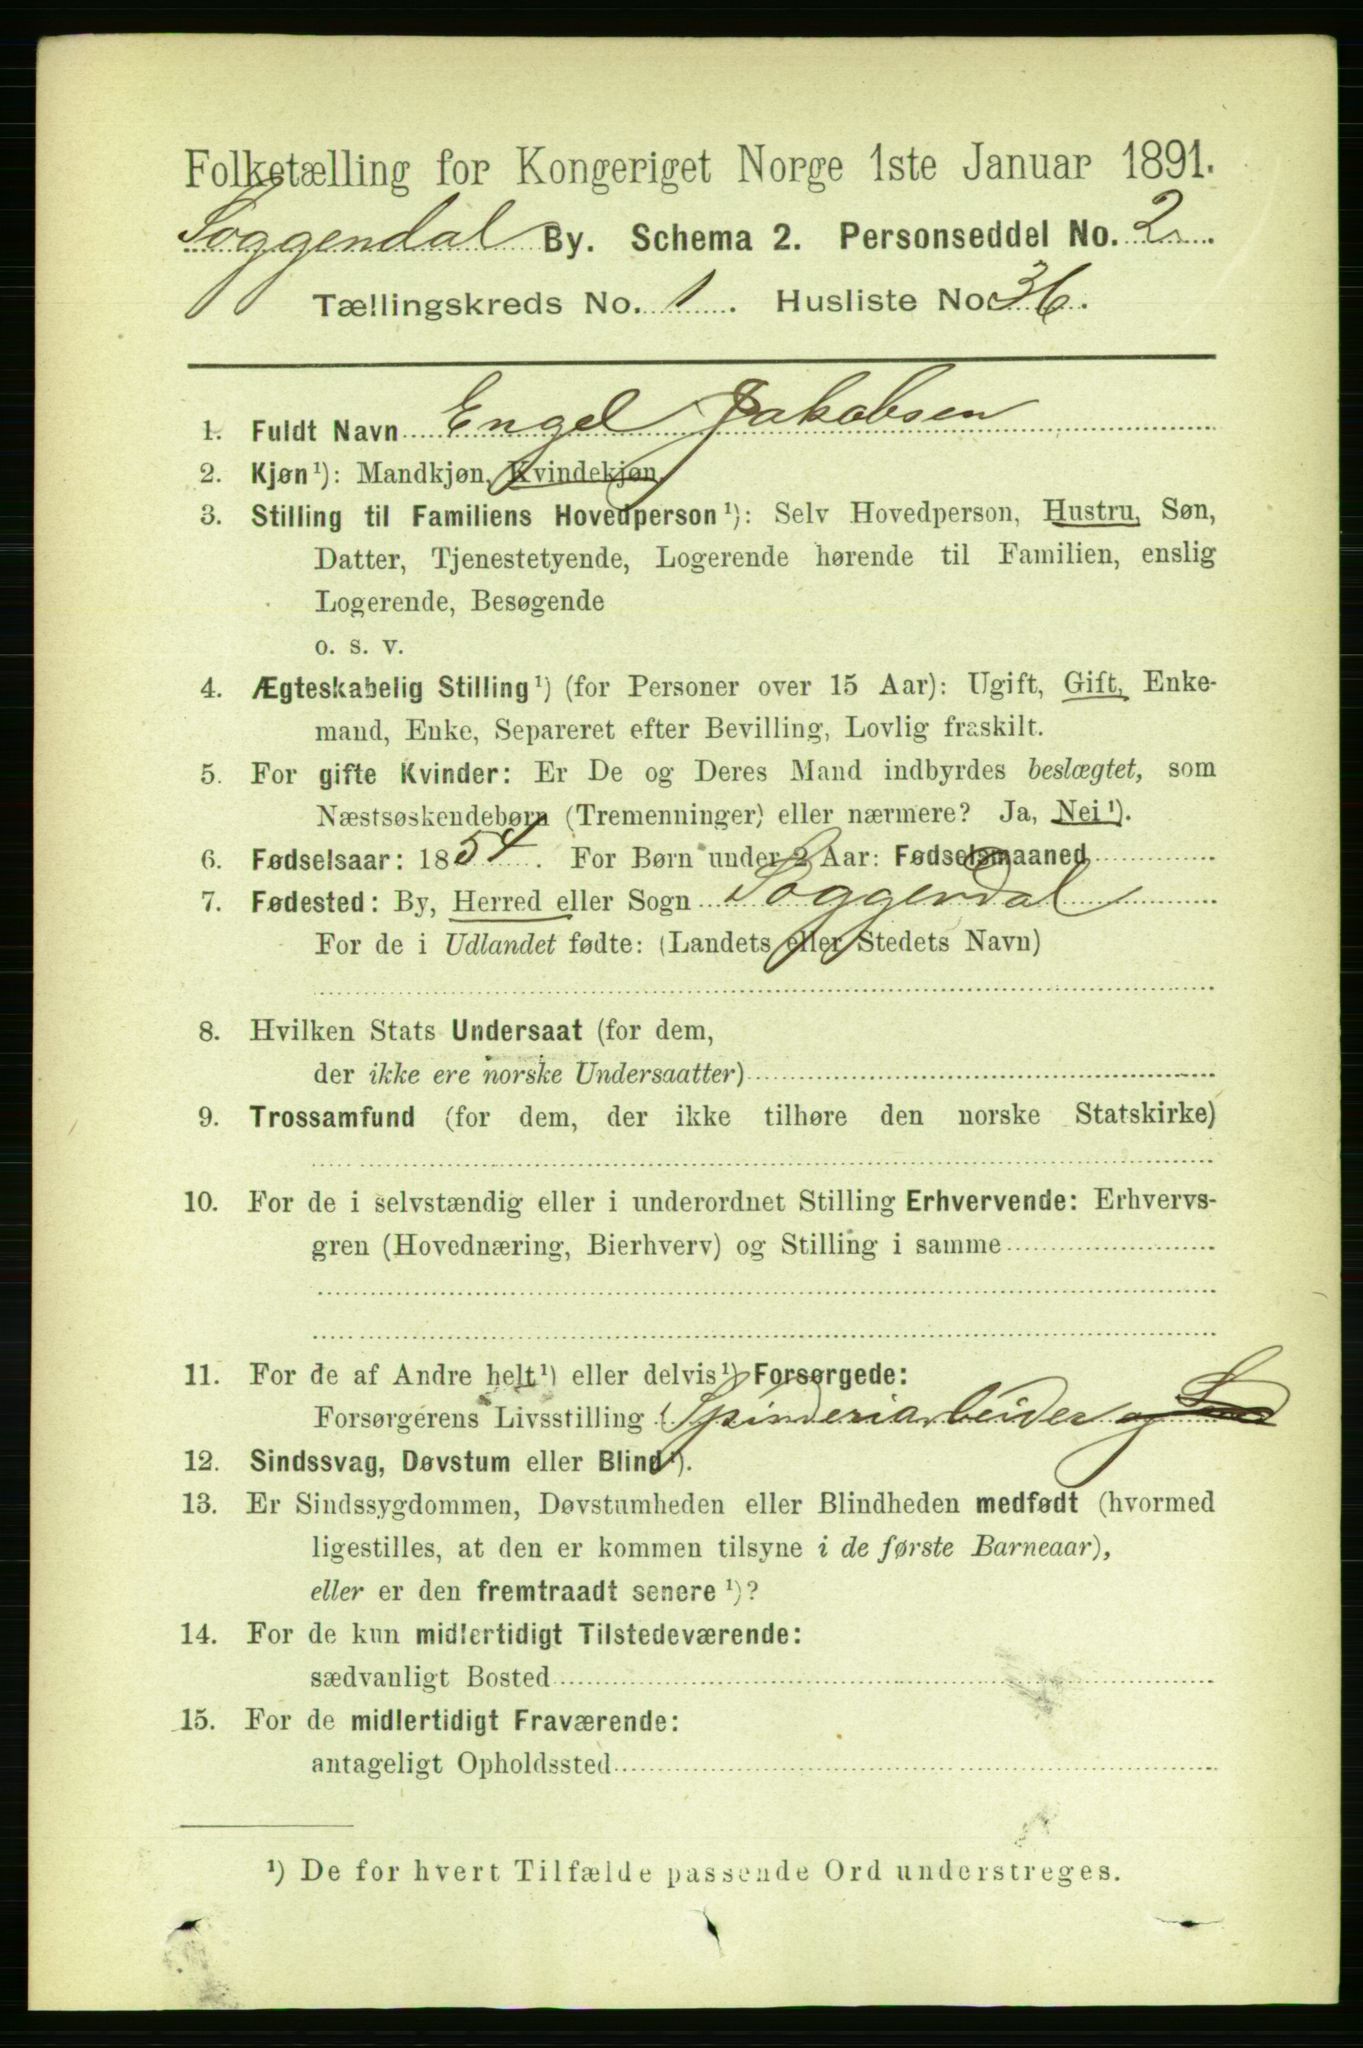 Folketælling for Kongeriget Norge 1ste Januar 1891.
Soggendal By. Schema 2. Personseddel No. 2
Tællingskreds No. 1. Husliste No 36.
1. Fuldt Navn Engel Jakobsen
2. Kjøn¹): Mandkjøn, Kvindekjøn.
3. Stilling til Familiens Hovedperson¹): Selv Hovedperson, Hustru, Søn,
Datter, Tjenestetyende, Logerende hørende til Familien, enslig
Logerende, Besøgende
o. s. v.
4. Ægteskabelig Stilling¹) (for Personer over 15 Aar): Ugift, Gift, Enke-
mand, Enke, Separeret efter Bevilling, Lovlig fraskilt.
5. For gifte Kvinder: Er De og Deres Mand indbyrdes beslægtet, som
Næstsøskendebørn (Tremenninger) eller nærmere? Ja, Nei¹).
6. Fødselsaar: 1854. For Børn under 2 Aar: Fødselsmaaned
7. Fødested: By, Herred eller Sogn Soggendal
For de i Udlandet fødte: (Landets eller Stedets Navn)
8. Hvilken Stats Undersaat (for dem,
der ikke ere norske Undersaatter)
9. Trossamfund (for dem, der ikke tilhøre den norske Statskirke)
10. For de i selvstændig eller i underordnet Stilling Erhvervende: Erhvervs-
gren (Hovednæring, Bierhverv) og Stilling i samme
11. For de af Andre helt¹) eller delvis¹) Forsørgede:
Forsørgerens Livsstilling Spinderiarbeider og
12. Sindssvag, Døvstum eller Blind¹).
13. Er Sindssygdommen, Døvstumheden eller Blindheden medfødt (hvormed
ligestilles, at den er kommen tilsyne i de første Barneaar),
eller er den fremtraadt senere¹)?
14. For de kun midlertidigt Tilstedeværende:
sædvanligt Bosted
15. For de midlertidigt Fraværende:
antageligt Opholdssted
¹) De for hvert Tilfælde passende Ord understreges.